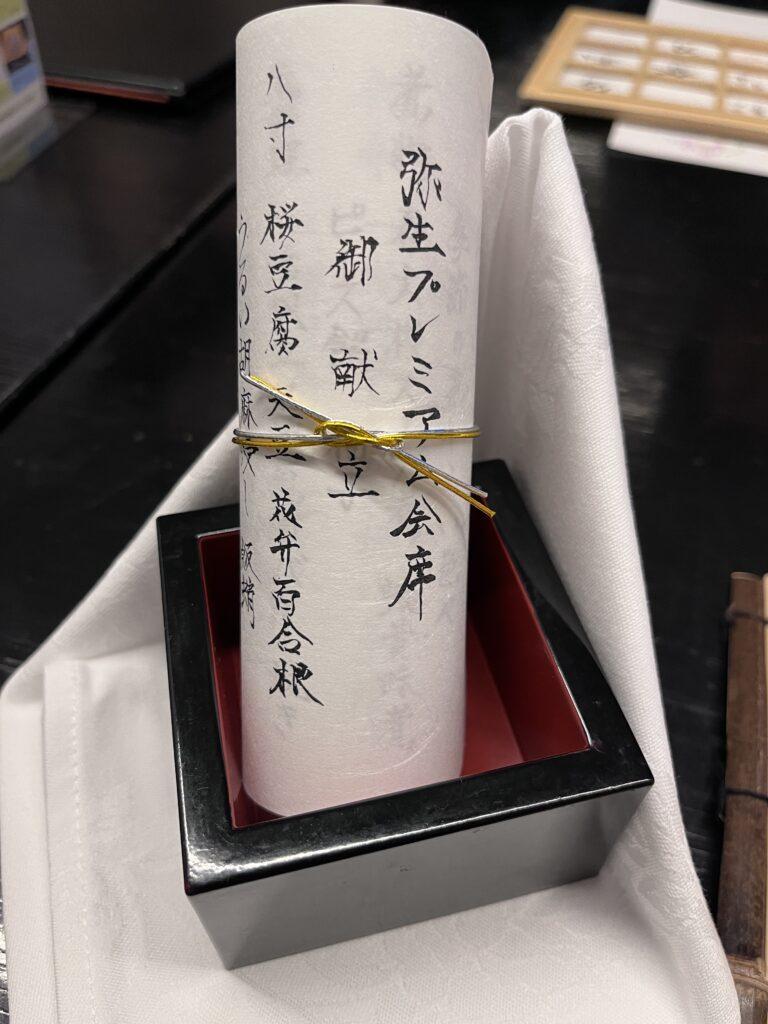 弥生プレミアム会席
御献立
八寸 桜豆腐 天豆 花弁百合根
うるい胡麻 飯蛸